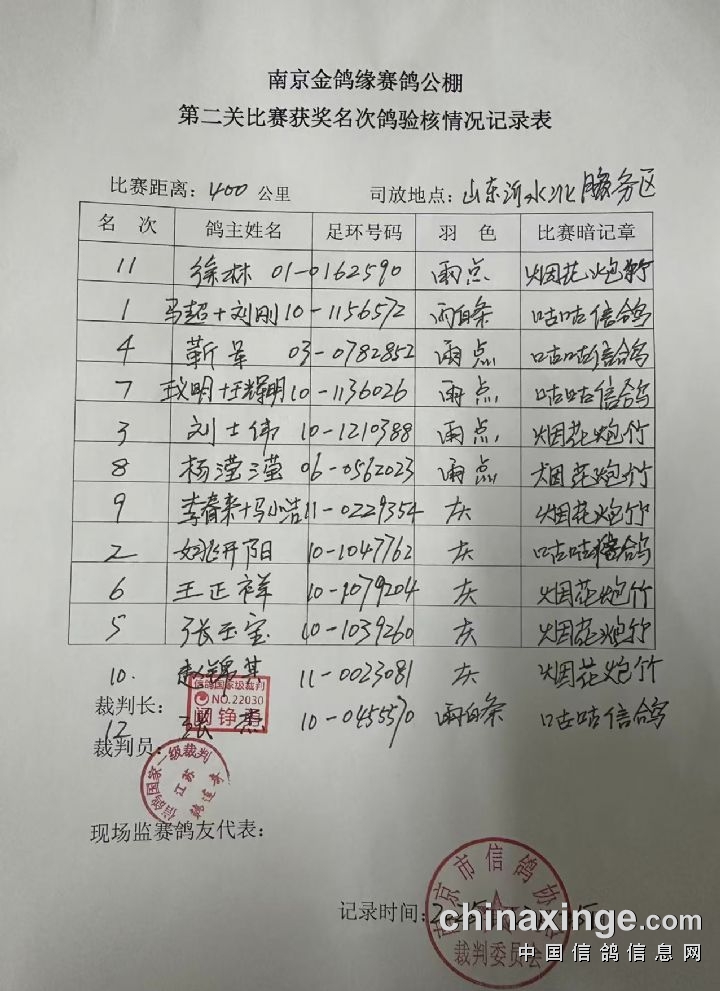 南京金鸽缘赛鸽公棚
第二关比赛获奖名次鸽验核情况记录表
比赛距离：400 公里 司放地点：山东沂水北服务区
名 次 鸽主姓名 足环号码 羽 色 比赛暗记章
11 徐林 01-0162590 雨点 烟花炮竹
1 马超+刘刚 10-1156572 雨白条 咕咕信鸽
4 靳军 03-0782852 雨点 咕咕信鸽
7 明+王辉明 10-1136026 雨点 咕咕信鸽
3 刘士伟 10-1210388 雨点 烟花炮竹
8 杨滢滢 06-0562023 雨点 烟花炮竹
9 李春来+马小洁 11-0229354 灰 烟花炮竹
2 姚开阳 10-1047762 灰 咕咕信鸽
6 王正祥 10-1079204 灰 烟花炮竹
5 张玉宝 10-1039260 灰 烟花炮竹
10. 赵锦其 11-0023081 灰 烟花炮竹
信鸽国家级裁判
NO.22030
裁判长：
12 张杰 10-0455570 雨白条 咕咕信鸽
裁判员：
信鸽国家一级裁判
江苏
现场监赛鸽友代表：
南京市信鸽协会
记录时间：
裁判委员会
chinaxinge.com
中国信鸽信息网